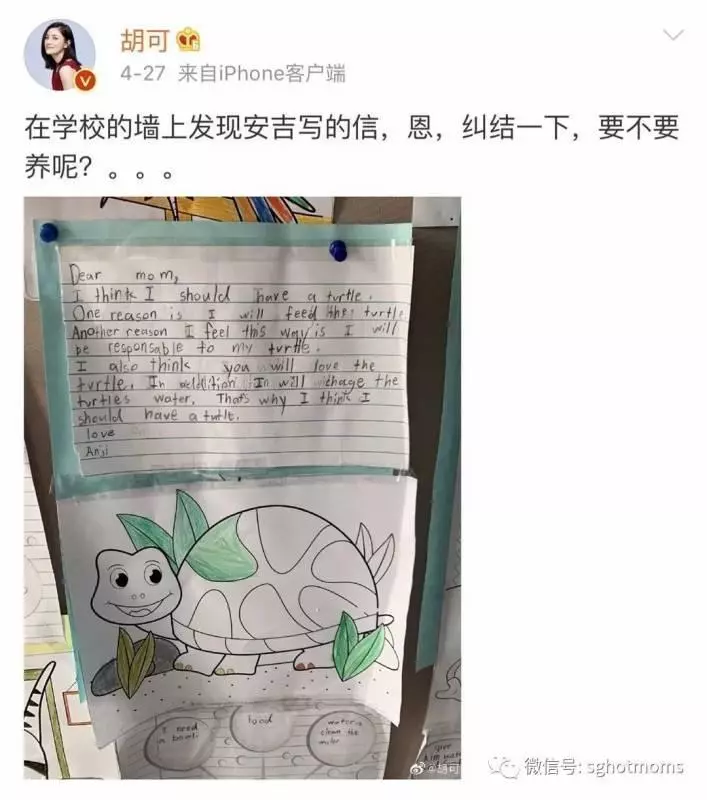 胡可
4-27 来自iPhone客户端
在学校的墙上发现安吉写的信，恩，纠结一下，要不要
养呢？。。。
Dear mom,
I think I should have a turtle.
One reason is I will feed the turtle
Another reason I feel this way is I will
be responsable to my turtle.
I also think you will love the
turtle. In addition In will change the
turtles water. That's why I think I
should have a turtle.
love
Anji
I need
a bowl
food
water
clean the
water
give
him water
@胡可
微信号: sghotmoms